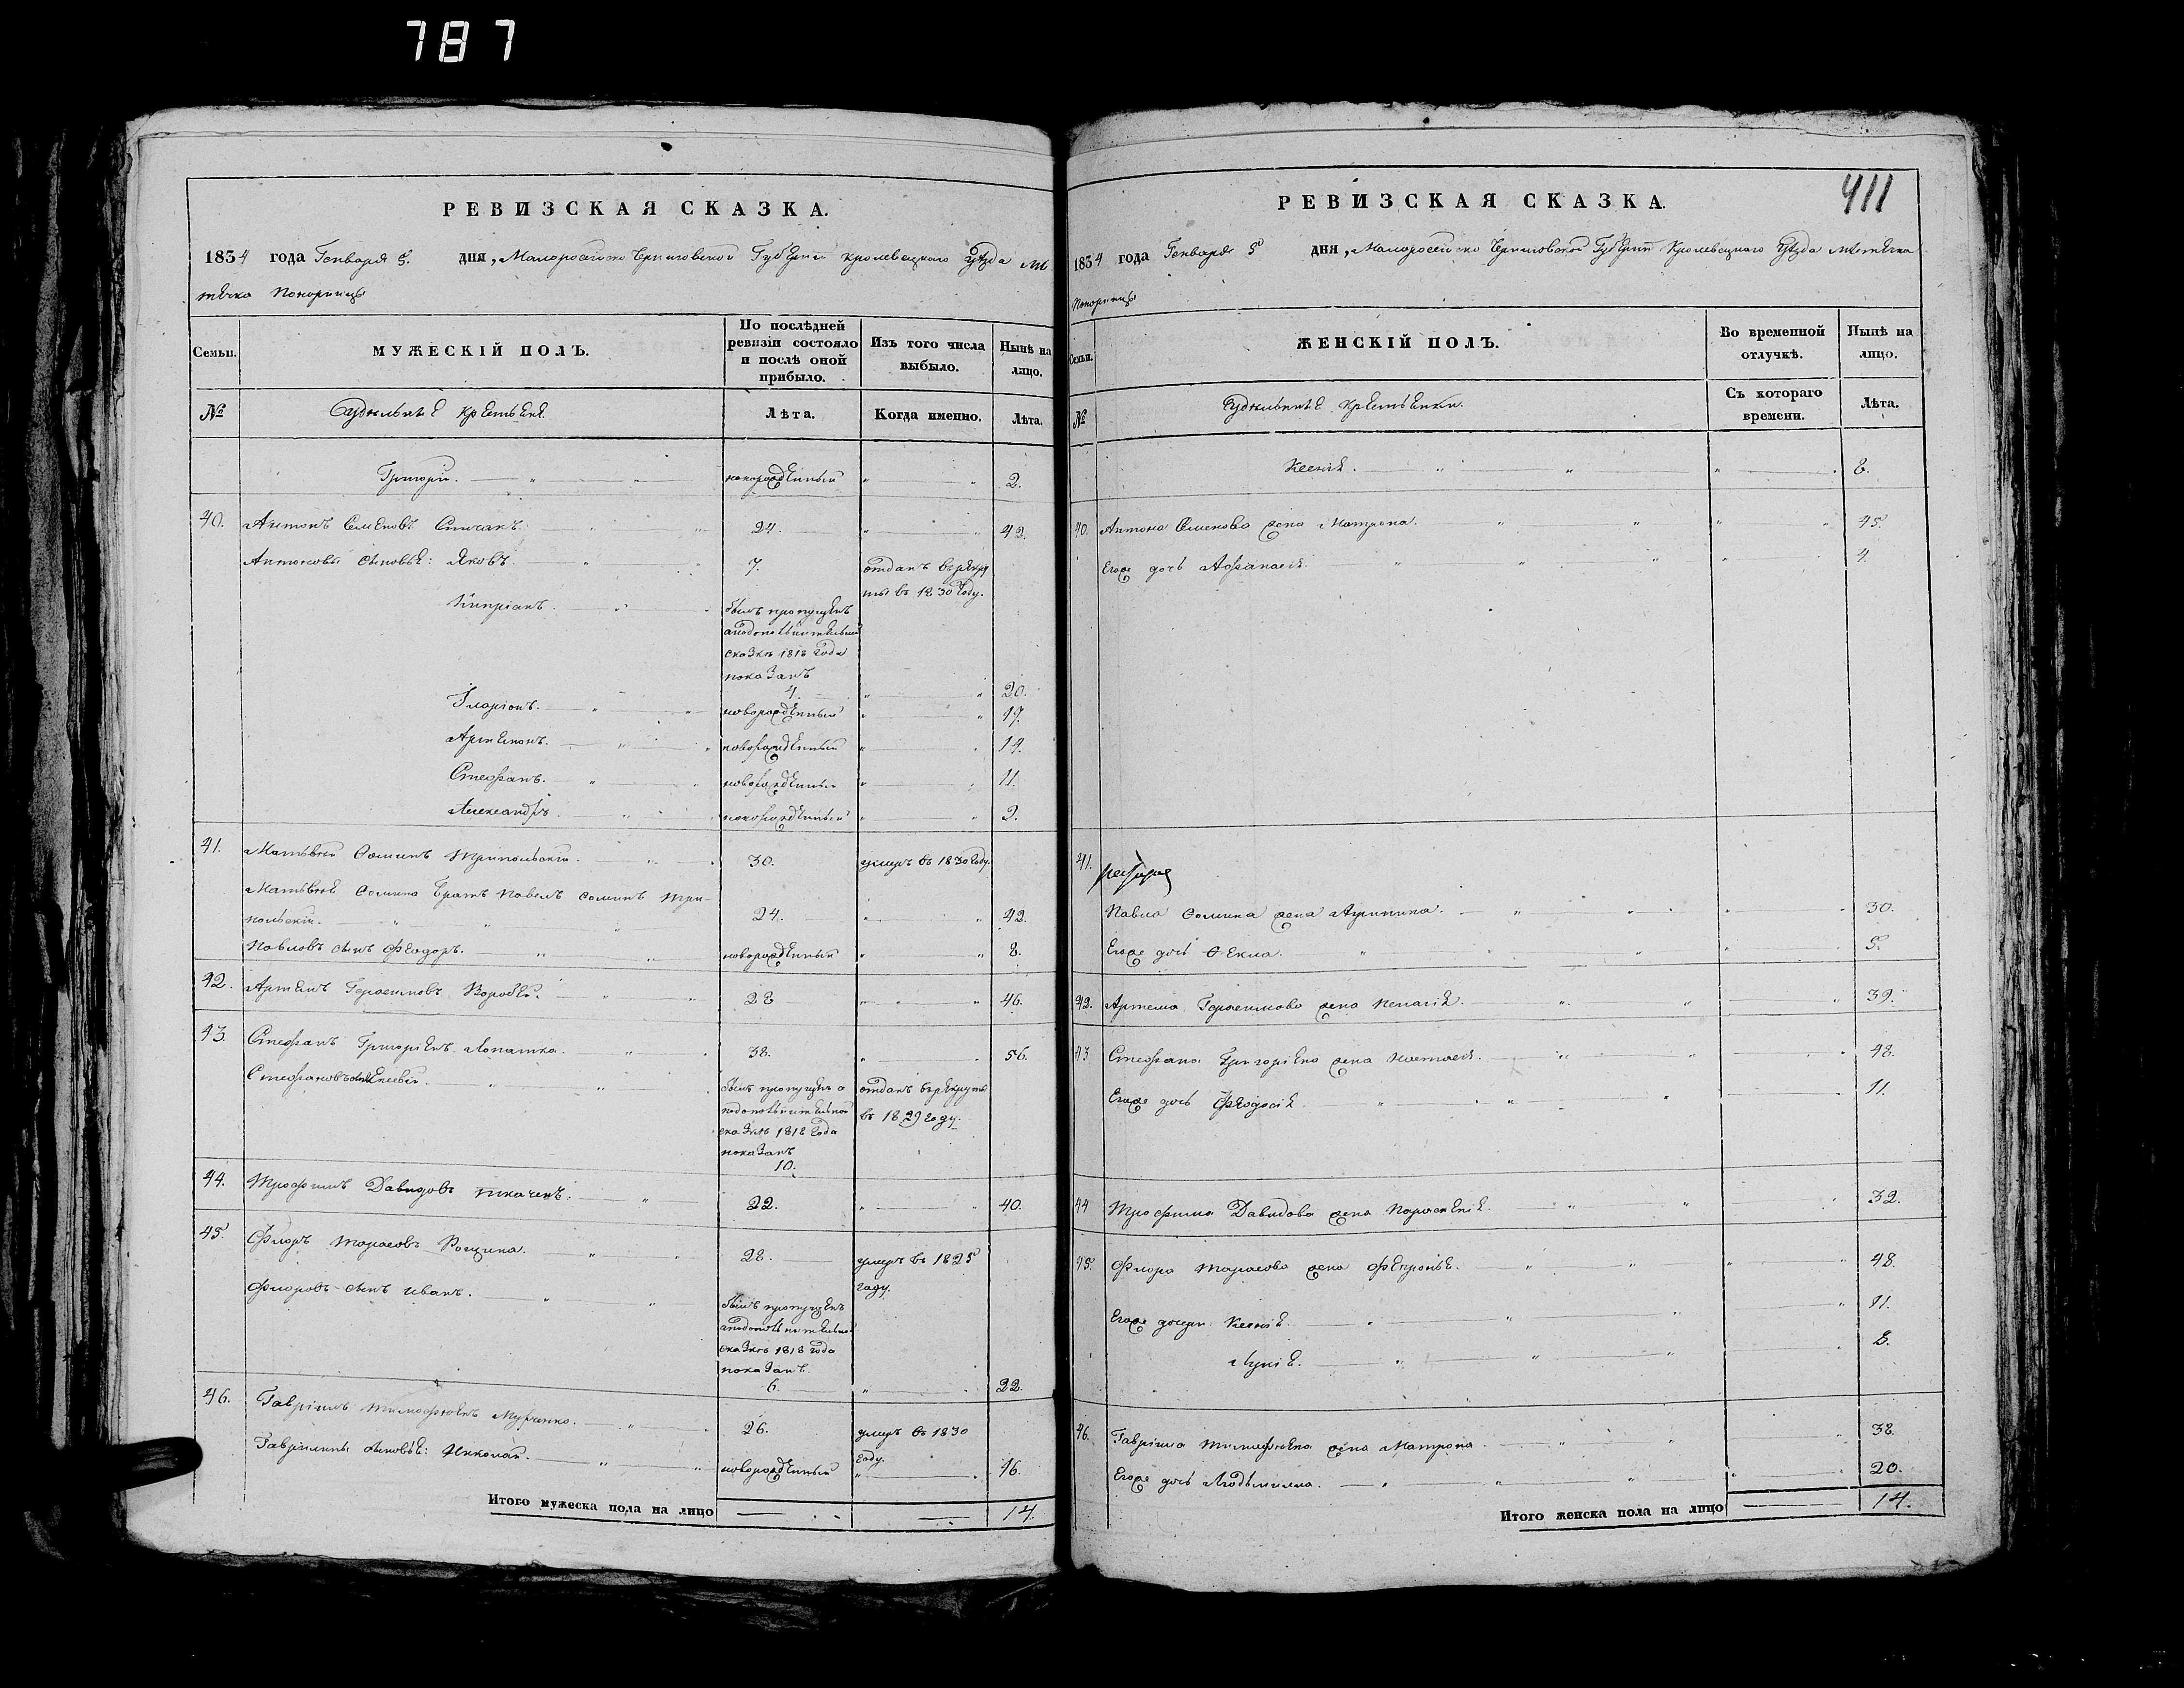 787
411
РЕВИЗСКАЯ СКАЗКА.
1834 года Генваря 5. дня, Малоросейско Черниговской Губернии Кролевецкаго уѣзда мѣ
течка Понорницы
Семьи.
МУЖЕСКІЙ ПОЛЪ.
По послѣдней ревизіи состояло и послѣ оной прибыло.
Изъ того числа выбыло.
Нынѣ на лицо.
№
Лѣта.
Когда именно.
Лѣта.
Григорій. новорожденный 2.
40. Антонъ Семеновъ Спичакъ 24. 42.
Антоновы сыновья: Яковъ 7. отданъ врекру
ты въ 1830 году.
Кипріанъ. былъ пропущенъ
аподополнительной
сказкѣ 1818 года
показанъ
4. 20.
Іларіонъ. новорожденный 17.
Артемонъ. новорожденный 14.
Стефанъ. новорожденный 11.
Александръ новорожденный 2.
41. Матвѣй Фоминъ Трипольскій. 30. умеръ въ 1830 году.
Матвѣя Фомина братъ Павелъ Фоминъ Три-
польскій. 24. 42.
Павловъ сынъ Феодоръ. новорожденный 8.
42. Артемъ Герасимовъ Воробей. 28 46.
43. Стефанъ Григорьевъ Лопатка. 38. 56.
Стефановъ сынъ Евсевій. былъ пропущенъ а
подополнительной
сказкѣ 1818 года
показанъ
10.
отданъ врекруты
въ 1829 году.
44. Трофимъ Давидовъ Ткачевъ. 22. 40.
45. Флоръ Тарасовъ Рощина. 28. умеръ въ 1825
году.
Флоровъ сынъ Иванъ. былъ пропущенъ
аподополнительно
сказкѣ 1818 года
показанъ
6. 22.
46. Гавріилъ Тимофѣевъ 26. умеръ въ 1830
году.
Гавріиловы сыновья: Николай. новорожденный 16.
Итого мужеска пола на лицо 14.
РЕВИЗСКАЯ СКАЗКА.
1834 года Генваря 5 дня, Малоросейско Черниговской Губернии Кролевецкаго уѣзда мѣстечка
Понорницы
Семьи.
ЖЕНСКІЙ ПОЛЪ.
Во временной отлучкѣ.
Нынѣ на лицо.
№
Съ котораго времени.
Лѣта.
Ксенія. 8.
40. Антона Семенова жена Матрона. 45.
Егоже дочь Афанасія. 4.
41.
Павла Фомина жена Агрипина. 30.
Егоже дочь Фекла. 5.
42. Артема Герасимова жена Пелагія. 39.
43 Стефана Григорьева жена Настасія. 48.
Егоже дочь Феодосія 11.
44 Трофима Давидова жена Парасковія. 32.
45. Флора Тарасова жена Февронія. 48.
Егоже дочери: Ксенія. 11.
Лукія. 8.
46. Гавріила Тимофѣева жена Матрона. 38.
Егоже дочь Людьмилла. 20.
Итого женска пола на лицо 14.